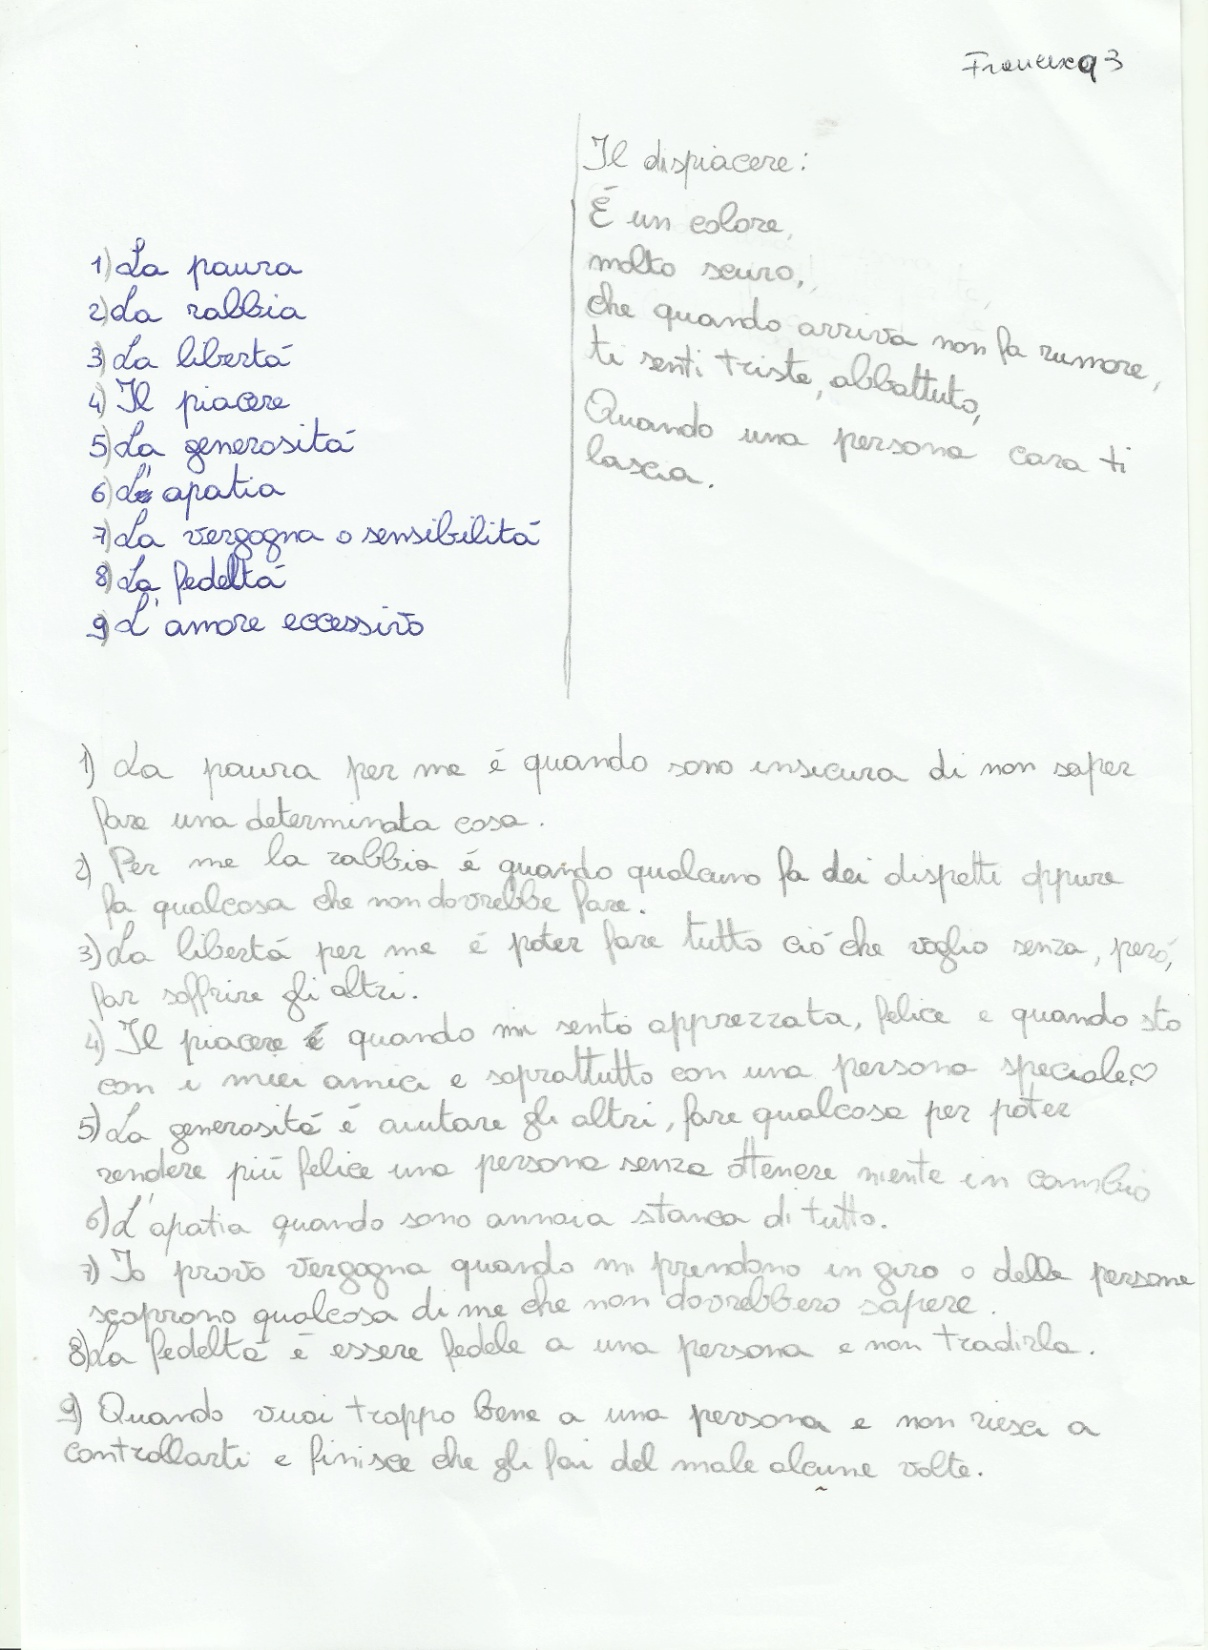 Francesca 3
1) La paura
2) La rabbia
3) La libertá
4) Il piacere
5) La generositá
6) L' apatia
7) La vergogna o sensibilitá
8) La fedeltá
9) L'amore eccessivo
Il dispiacere:
É un colore,
molto scuro,
che quando arriva non fa rumore,
ti senti triste, abbattuto,
Quando una persona cara ti
lascia.
1) La paura per me é quando sono insicura di non saper
fare una determinata cosa.
2) Per me la rabbia é quando qualcuno fa dei dispetti oppure
fa qualcosa che non dovrebbe fare.
3) La libertá per me é poter fare tutto ció che voglio senza, peró,
far soffrire gli altri.
4) Il piacere é quando mi sento apprezzata, felice e quando sto
con i miei amici e soprattutto con una persona speciale.♡
5) La generositá é aiutare gli altri, fare qualcosa per poter
rendere piú felice una persona senza ottenere niente in cambio
6) L'apatia quando sono annoia stanca di tutto.
7) Io provo vergogna quando mi prendono in giro o delle persone
scoprono qualcosa di me che non dovrebbero sapere.
8) La fedeltá é essere fedele a una persona e non tradirla.
9) Quando vuoi troppo bene a una persona e non riesci a
controllarti e finisce che gli fai del male alcune volte.